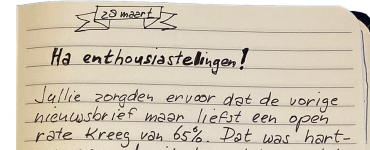 29 maart
Ha enthousiastelingen!
Jullie zorgden ervoor dat de vorige
nieuwsbrief maar liefst een open
rate kreeg van 65%. Dat was hart-